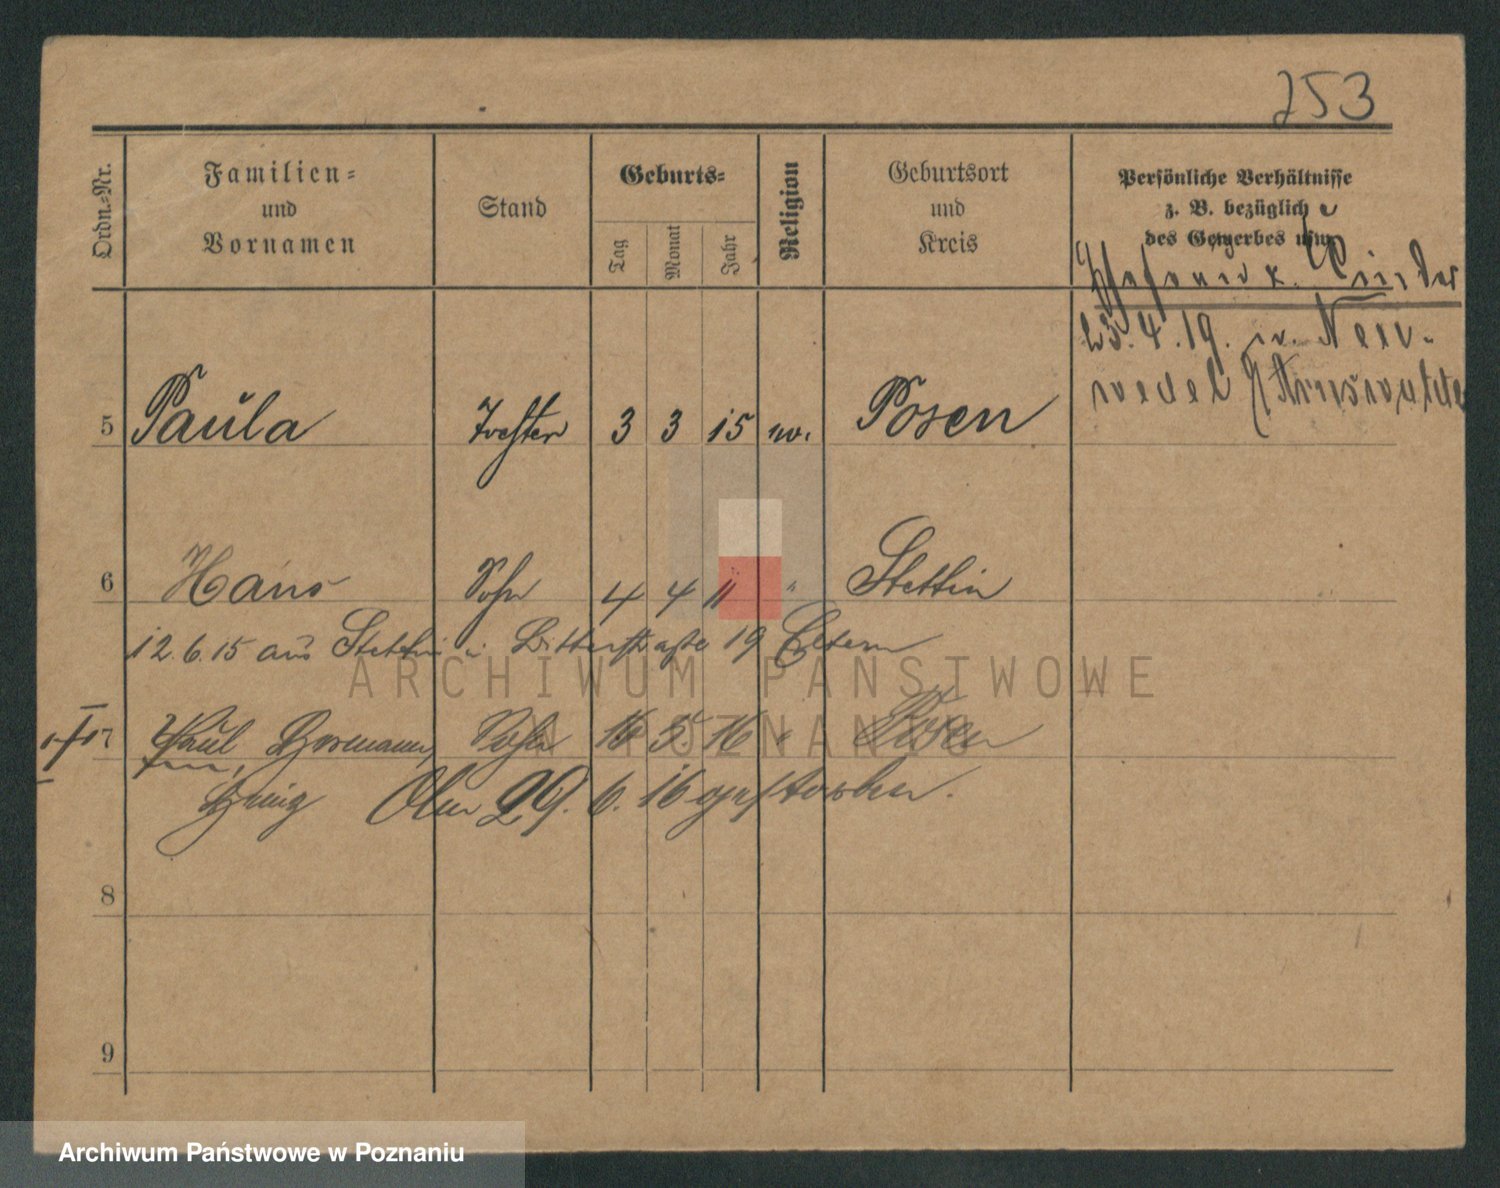 253
Ordn.-Nr.
Familien=
und
Vornamen
Stand
Geburts=
Tag
Monat
Jahr
Religion
Geburtsort
und
Kreis
Persönliche Verhältnisse
z. B. bezüglich
des Gewerbes usw.
Kinder
23.4.19. Neu-
wedel
5 Paula Tochter 3 3 15 Posen
6 Hans Sohn 4 4 11 " Stettin
12.6.15 aus Stettin Bitterstraße 19 Eltern
7 Paul Hermann, Sohn 16 5 16 " Posen
Heinz 29. 6. 16 gestorben.
8
9
ARCHIWUM PAŃSTWOWE
W POZNANIU
Archiwum Państwowe w Poznaniu